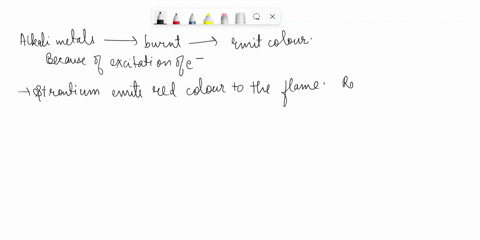 Alkali metals → burnt → emit colour.
Because of excitation of e⁻
→ Strontium emits red colour to the flame. Re